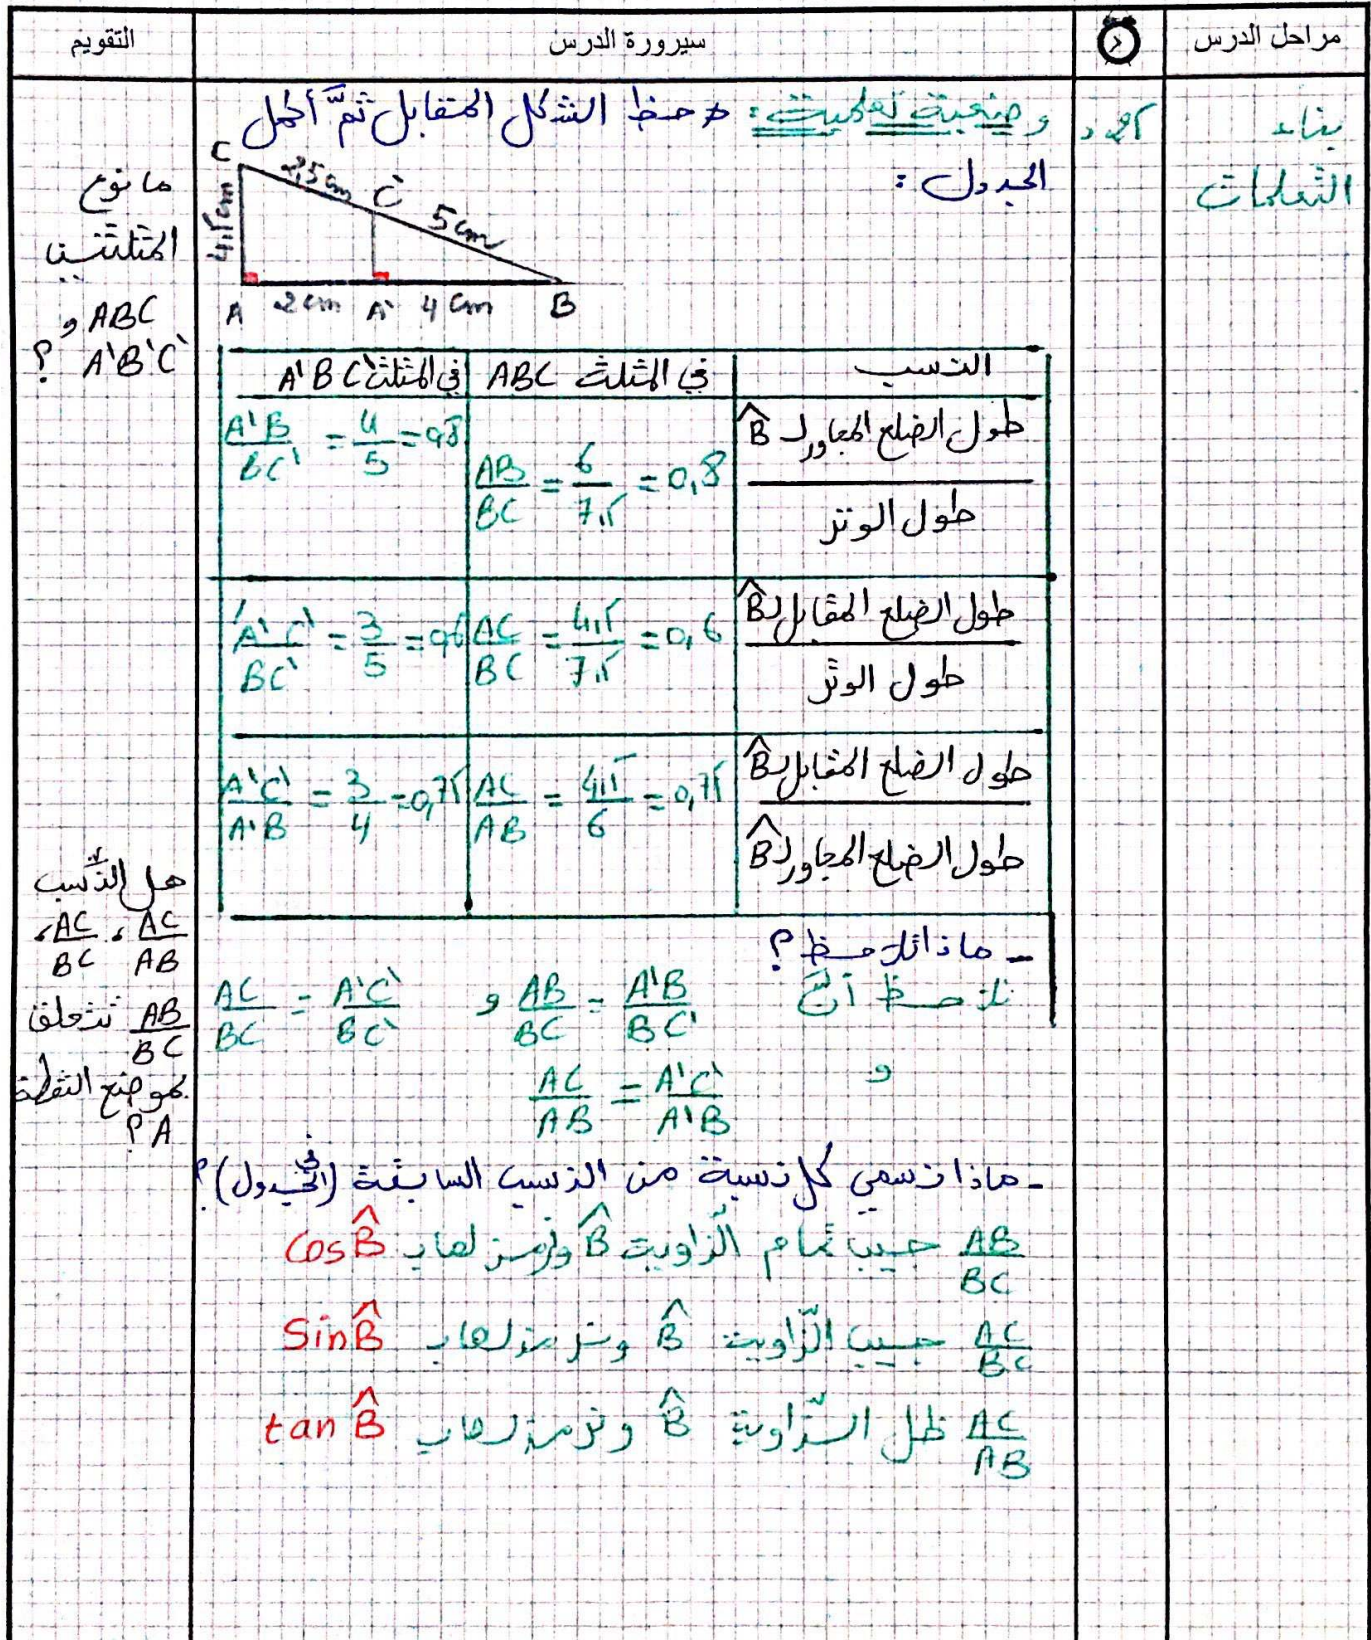 مراحل الدرس
سيرورة الدرس
التقويم
بناء
التعلمات
25 د
وضعية تعلمية: لاحظ الشكل المقابل ثمّ أكمل
الجدول:
C
2,5 cm
C'
5 cm
4,5 cm
A
2 cm
A'
4 cm
B
النسب
في المثلث ABC
في المثلث A'BC'
طول الضلع المجاور لـ B̂
طول الوتر
AB/BC = 6/7,5 = 0,8
A'B/BC' = 4/5 = 0,8
طول الضلع المقابل لـ B̂
طول الوتر
AC/BC = 4,5/7,5 = 0,6
A'C'/BC' = 3/5 = 0,6
طول الضلع المقابل لـ B̂
طول الضلع المجاور لـ B̂
AC/AB = 4,5/6 = 0,75
A'C'/A'B = 3/4 = 0,75
- ماذا تلاحظ؟
نلاحظ أنّ AB/BC = A'B/BC' و AC/BC = A'C'/BC'
و AC/AB = A'C'/A'B
- ماذا نسمي كل نسبة من النسب السابقة (في الجدول)؟
AB/BC جيب تمام الزّاوية B̂ ونرمز لها بـ cos B̂
AC/BC جيب الزّاوية B̂ ونرمز لها بـ Sin B̂
AC/AB ظل الزّاوية B̂ ونرمز لها بـ tan B̂
ما نوع
المثلثين
ABC و
A'B'C' ؟
هل النّسب
AC/AB ، AC/BC ،
AB/BC تتعلق
بموضع النقطة
A ؟